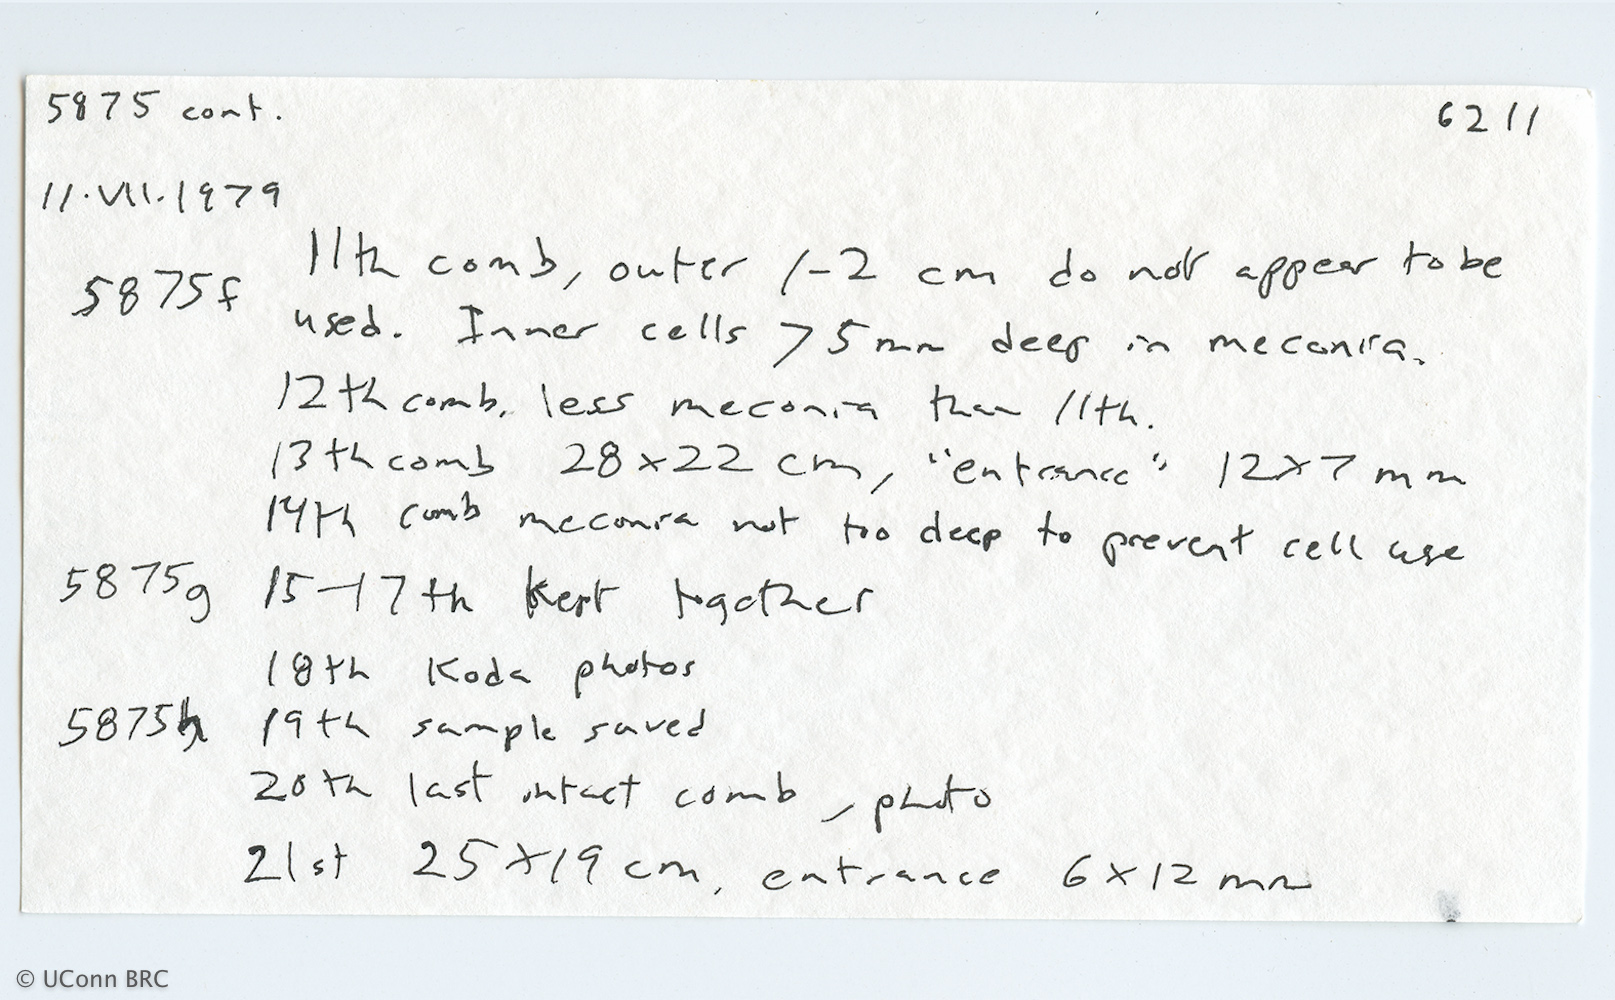 5875 cont. 6211
11.VII.1979
5875f 11th comb, outer 1-2 cm do not appear to be
used. Inner cells >5mm deep in meconia.
12th comb. less meconia than 11th.
13th comb 28x22 cm, "entrance" 12x7 mm
14th comb meconia not too deep to prevent cell use
5875g 15-17th Kept together
18th Koda photos
5875h 19th sample saved
20th last intact comb, photo
21st 25x19 cm, entrance 6x12 mm
© UConn BRC